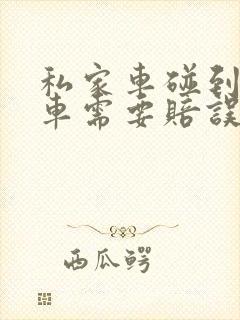 私家車碰到
車需要賠誤
西瓜鳄